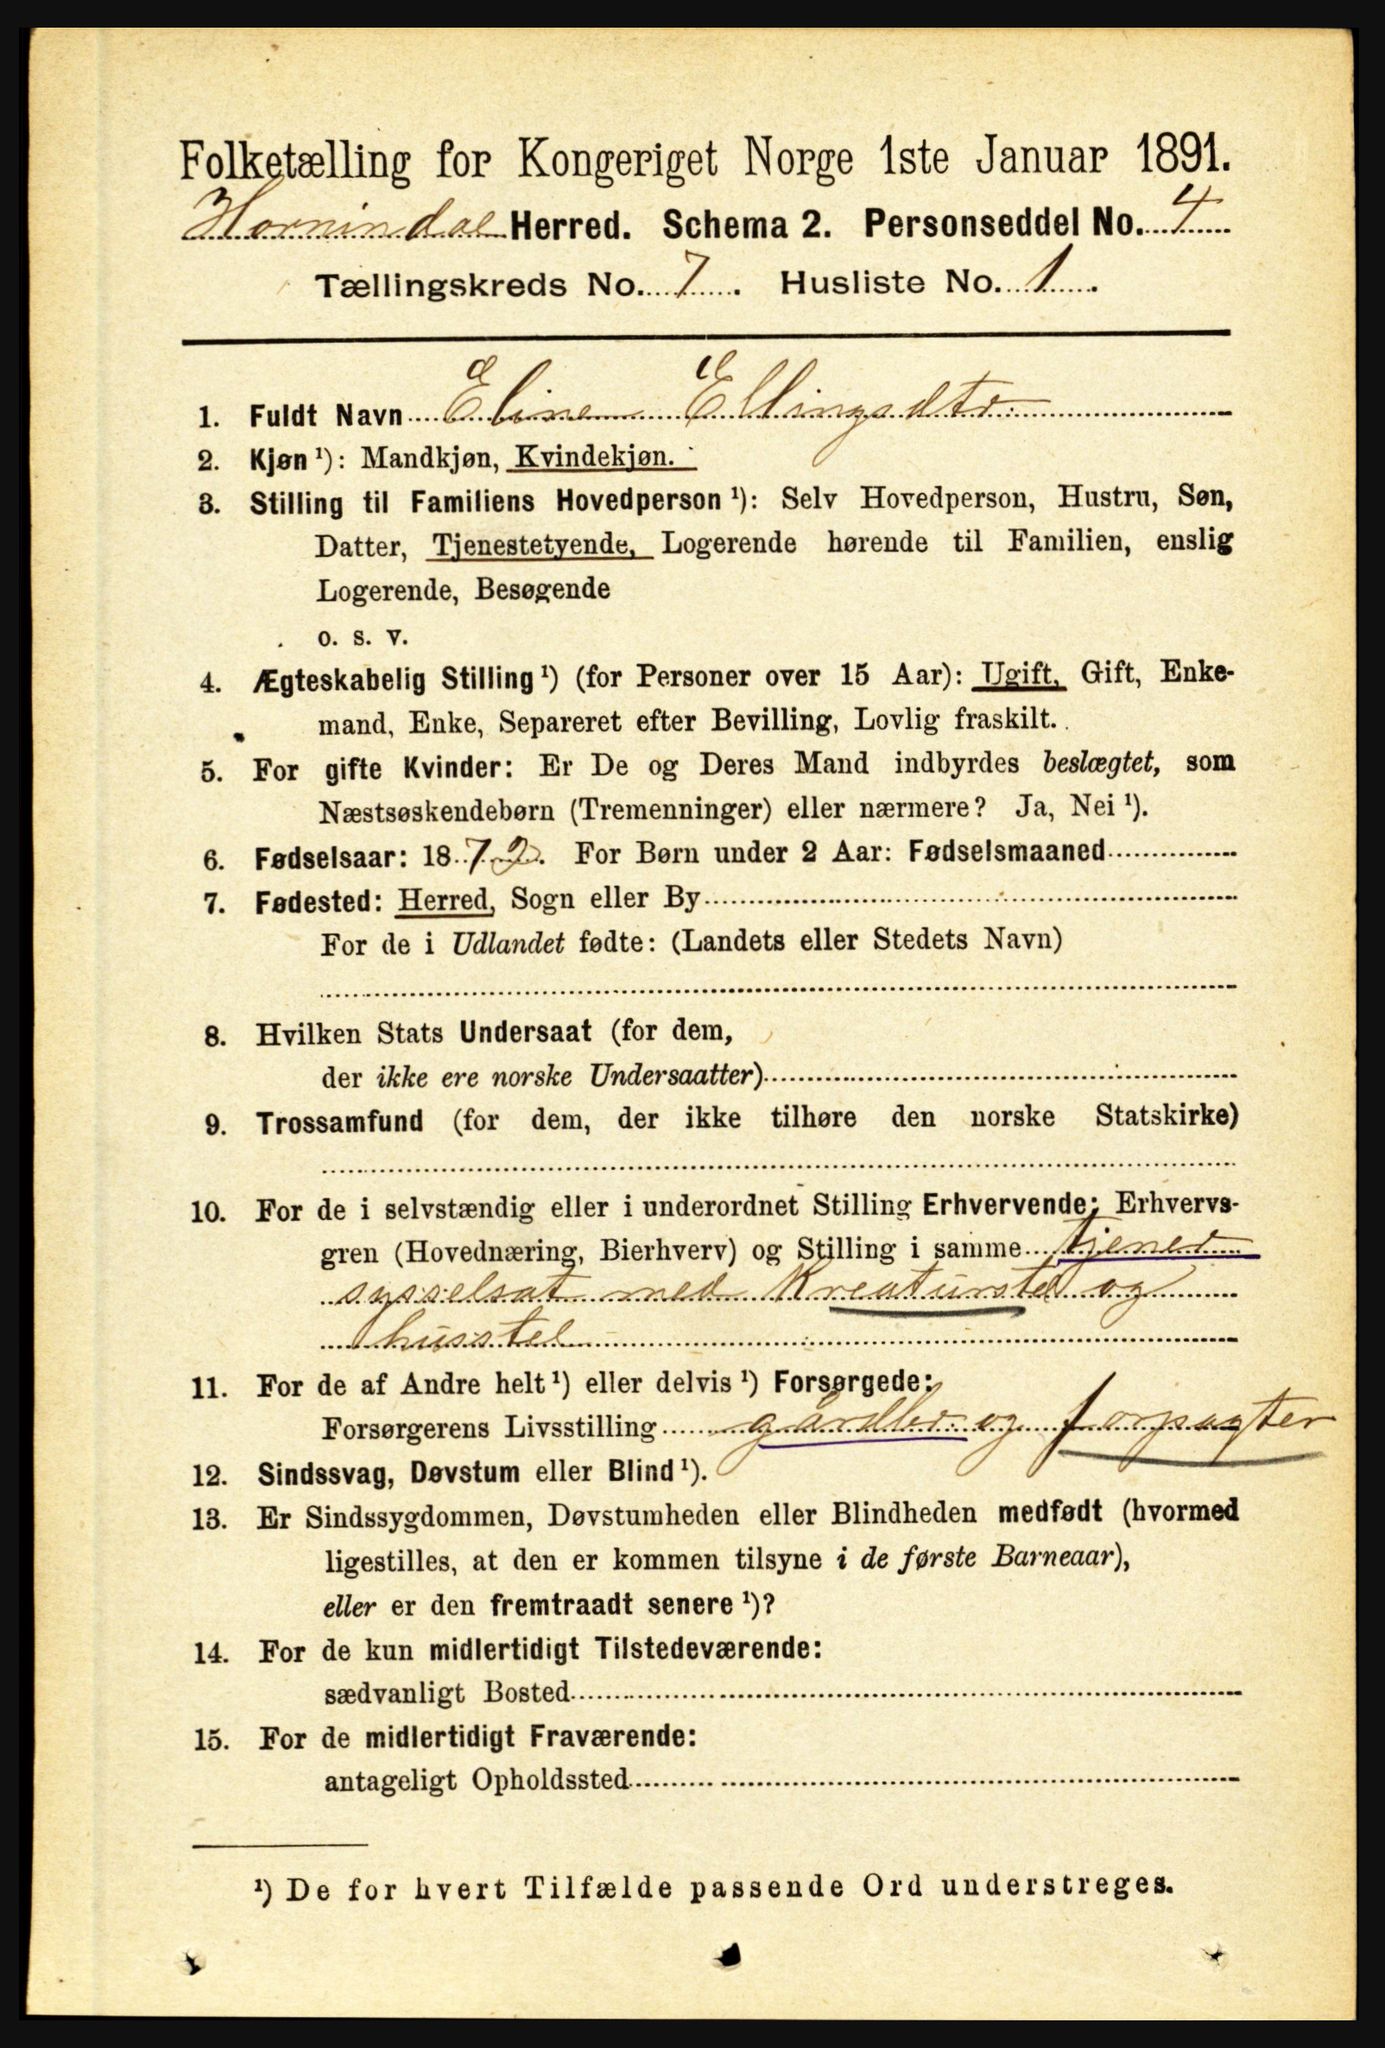 Folketælling for Kongeriget Norge 1ste Januar 1891.
Hornindal Herred. Schema 2. Personseddel No. 4
Tællingskreds No. 7. Husliste No. 1.
1. Fuldt Navn Eline Ellingsdtr.
2. Kjøn ¹): Mandkjøn, Kvindekjøn.
3. Stilling til Familiens Hovedperson ¹): Selv Hovedperson, Hustru, Søn,
Datter, Tjenestetyende, Logerende hørende til Familien, enslig
Logerende, Besøgende
o. s. v.
4. Ægteskabelig Stilling ¹) (for Personer over 15 Aar): Ugift, Gift, Enke-
mand, Enke, Separeret efter Bevilling, Lovlig fraskilt.
5. For gifte Kvinder: Er De og Deres Mand indbyrdes beslægtet, som
Næstsøskendebørn (Tremenninger) eller nærmere? Ja, Nei ¹).
6. Fødselsaar: 1872. For Børn under 2 Aar: Fødselsmaaned
7. Fødested: Herred, Sogn eller By
For de i Udlandet fødte: (Landets eller Stedets Navn)
8. Hvilken Stats Undersaat (for dem,
der ikke ere norske Undersaatter)
9. Trossamfund (for dem, der ikke tilhøre den norske Statskirke)
10. For de i selvstændig eller i underordnet Stilling Erhvervende: Erhvervs-
gren (Hovednæring, Bierhverv) og Stilling i samme tjener
sysselsat med Kreaturstel og
husstel
11. For de af Andre helt ¹) eller delvis ¹) Forsørgede:
Forsørgerens Livsstilling gårdbr. og forpagter
12. Sindssvag, Døvstum eller Blind ¹).
13. Er Sindssygdommen, Døvstumheden eller Blindheden medfødt (hvormed
ligestilles, at den er kommen tilsyne i de første Barneaar),
eller er den fremtraadt senere ¹)?
14. For de kun midlertidigt Tilstedeværende:
sædvanligt Bosted
15. For de midlertidigt Fraværende:
antageligt Opholdssted
¹) De for hvert Tilfælde passende Ord understreges.